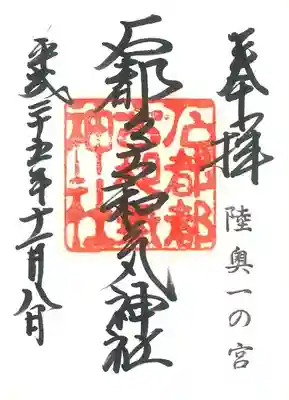 奉拝
陸奥一の宮
石都々古和気神社
石都都
古和氣
神社
平成二十五年十一月八日